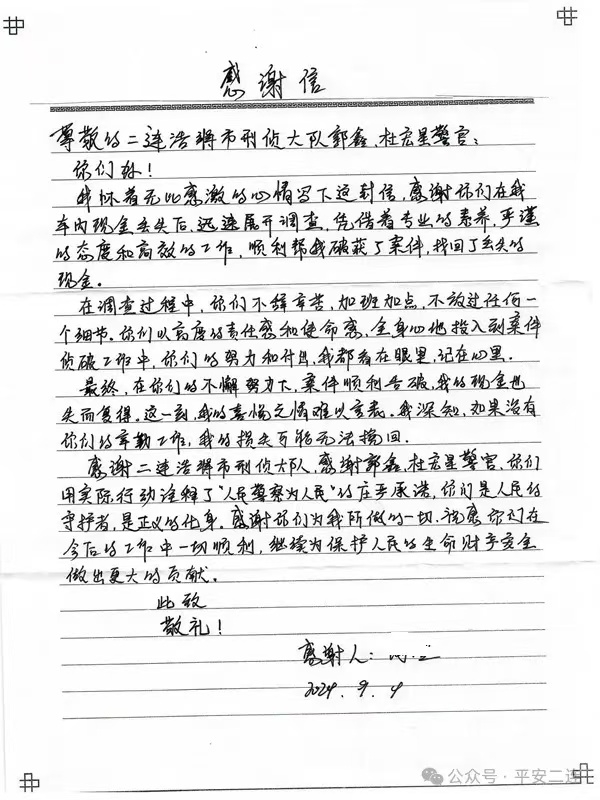 感谢信
尊敬的二连浩特市刑侦大队郭鑫、杜宏星警官:
你们好!
我怀着无比感激的心情写下这封信,感谢你们在我
车内现金丢失后,迅速展开调查,凭借着专业的素养,严谨
的态度和高效的工作,顺利帮我破获了案件,找回了丢失的
现金。
在调查过程中,你们不辞辛苦,加班加点,不放过任何一
个细节。你们以高度的责任感和使命感,全身心地投入到案件
侦破工作中,你们的努力和付出,我都看在眼里,记在心里。
最终,在你们的不懈努力下,案件顺利告破,我的现金也
失而复得。这一刻,我的喜悦之情难以言表。我深知,如果没有
你们的辛勤工作,我的损失可能无法挽回。
感谢二连浩特市刑侦大队,感谢郭鑫、杜宏星警官,你们
用实际行动诠释了"人民警察为人民"的庄严承诺,你们是人民的
守护者,是正义的化身。感谢你们为我所做的一切,祝愿你们在
今后的工作中一切顺利,继续为保护人民的生命财产安全
做出更大的贡献。
此致
敬礼!
感谢人:
2024.9.4
公众号·平安二连